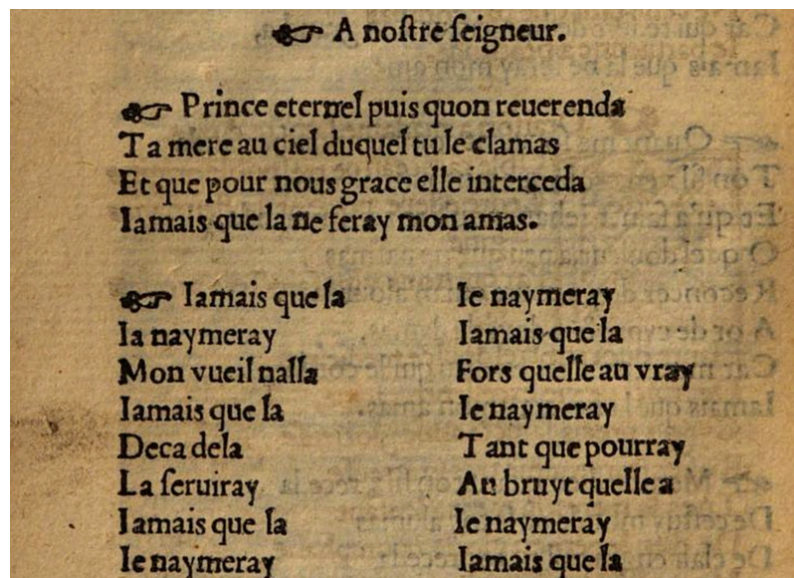 ☛ A noſtre ſeigneur.
☛ Prince eternel puis quon reuerenda
Ta mere au ciel duquel tu le clamas
Et que pour nous grace elle interceda
Iamais que la ne feray mon amas.
☛ Iamais que la
Ia naymeray
Mon vueil nalla
Iamais que la
Deca dela
La ſeruiray
Iamais que la
Ie naymeray
Ie naymeray
Iamais que la
Fors quelle au vray
Ie naymeray
Tant que pourray
Au bruyt quelle a
Ie naymeray
Iamais que la